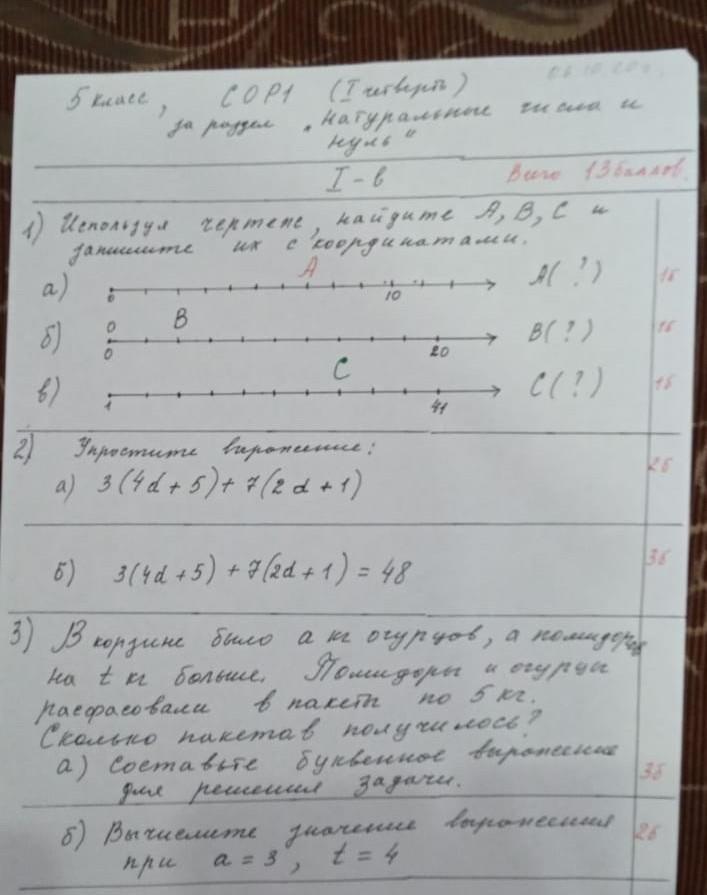 06.10.20
5 класс, СОР1 (I четверть)
за раздел "Натуральные числа и
нуль"
I-в Всего 13 баллов.
1) Используя чертеж, найдите A, B, C и
запишите их с координатами.
а) 0 A 10 A(?) 1б
б) 0 0 B 20 B(?) 1б
в) 1 C 41 C(?) 1б
2) Упростите выражение: 2б
а) 3(4d+5)+7(2d+1)
б) 3(4d+5)+7(2d+1)=48 3б
3) В корзине было a кг огурцов, а помидоров
на t кг больше. Помидоры и огурцы
расфасовали в пакеты по 5 кг.
Сколько пакетав получилось?
а) Составьте буквенное выражение
для решения задачи. 3б
б) Вычислите значение выражения 2б
при a=3, t=4